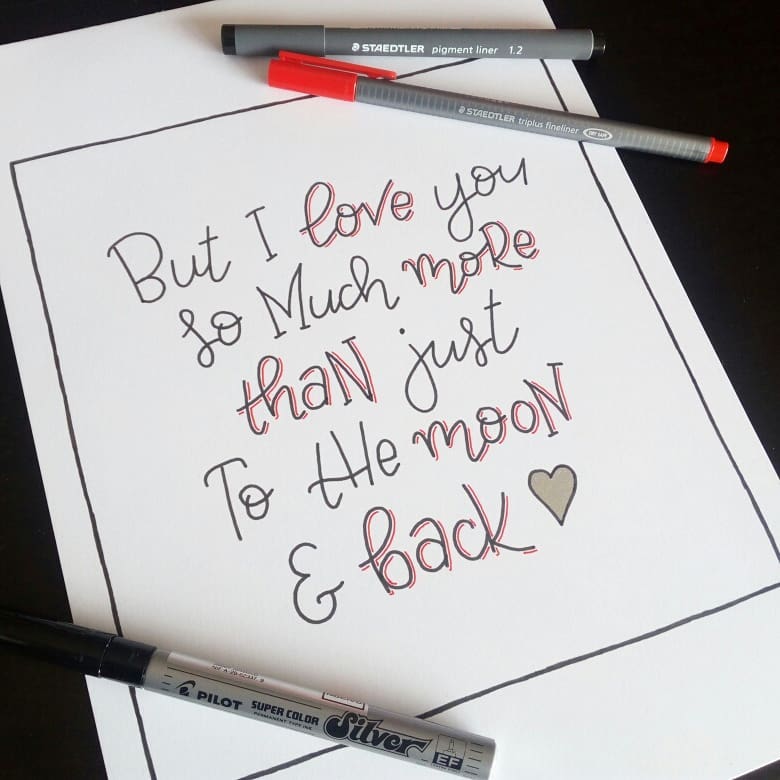 STAEDTLER pigment liner 1.2
STAEDTLER triplus fineliner DRY SAFE
But I love you
so Much moRe
thaN just
To tHe mooN
& back
PILOT SUPER COLOR Silver
PERMANENT TYPE INK
EF